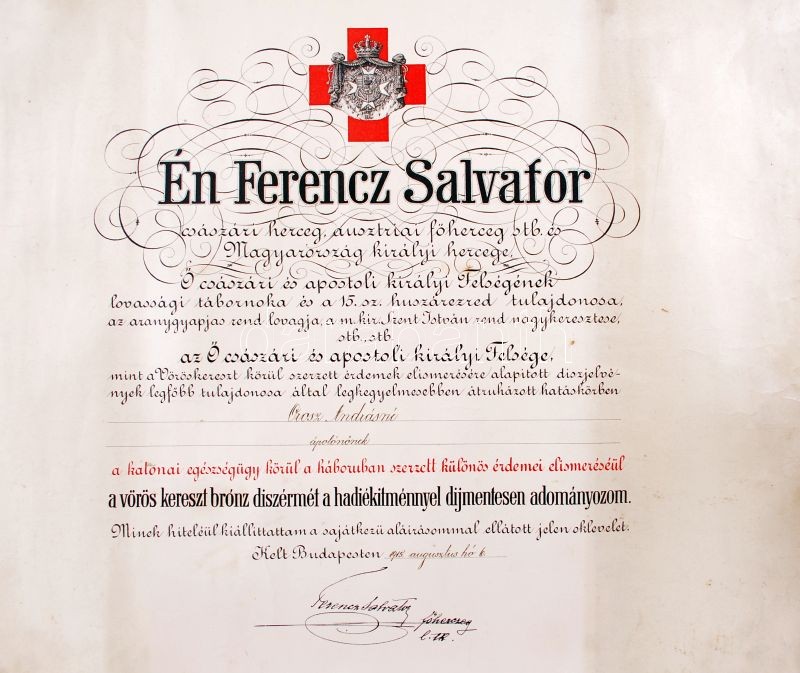 Én Ferencz Salvator
császári herceg, ausztriai főherceg stb. és
Magyarország királyi hercege,
Ő császári és apostoli királyi Felségének
lovassági tábornoka és a 15. sz. huszárezred tulajdonosa,
az aranygyapjas rend lovagja, a m. kir. Szent István rend nagykeresztese,
stb., stb.
az Ő császári és apostoli királyi Felsége,
mint a Vöröskereszt körül szerzett érdemek elismerésére alapított diszjelvé-
nyek legfőbb tulajdonosa által legkegyelmesebben átruházott hatáskörben
Orosz Andrásné
ápolónőnek
a katonai egészségügy körül a háboruban szerzett különös érdemei elismeréséül
a vörös kereszt bronz diszérmét a hadiékitménnyel dijmentesen adományozom.
Minek hiteléül kiállíttattam a sajátkezü aláirásommal ellátott jelen oklevelet.
Kelt Budapesten 1918 augusztus hó 6.
Ferencz Salvator főherczeg